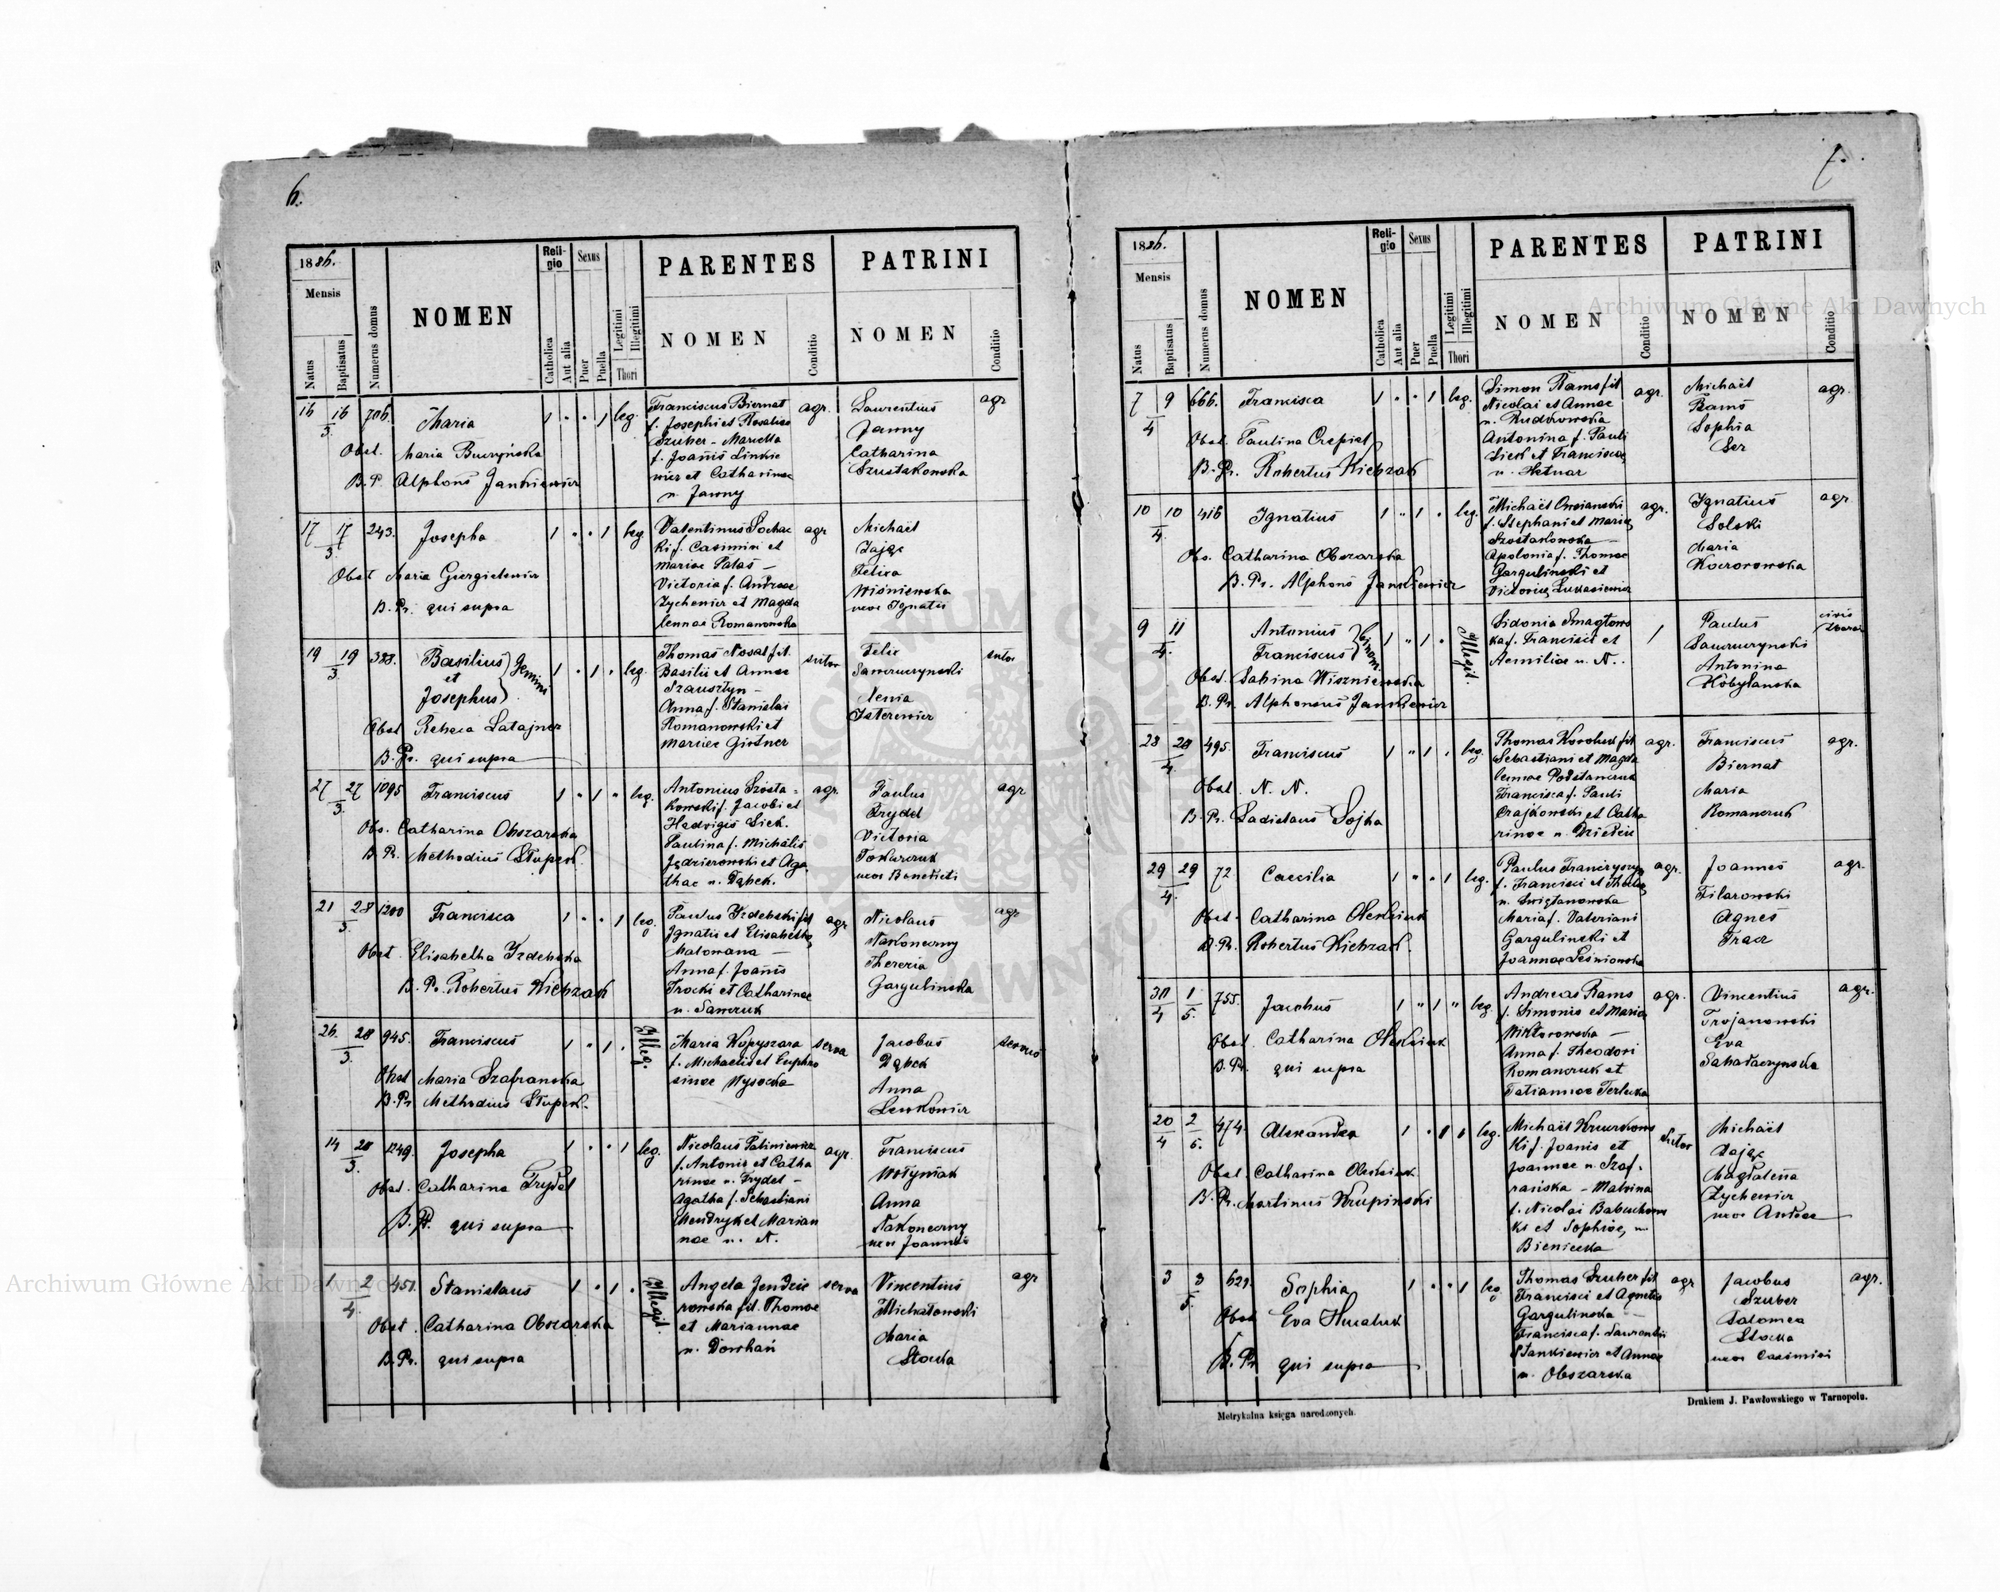 6.
1886.
Mensis
Natus
Baptisatus
Numerus domus
NOMEN
Religio
Catholica
Aut alia
Sexus
Puer
Puella
Legitimi
Illegitimi
Thori
PARENTES
NOMEN
Conditio
PATRINI
NOMEN
Conditio
16 16/3 706. Maria 1 " " 1 leg.
Obst. Maria Buczyńska
B. P. Alphons Jankiewicz
Franciscus Biernat
f. Josephi et Rosaliae
Szuber - Marcella
f. Joannis Linkie
wicz et Catharinae
n. Janny
agr.
Laurentius
Janny
Catharina
Szustakowska
agr
17 17/3 243. Josepha 1 " " 1 leg
Obst Maria Gurgielewicz
B. Pr. qui supra
Valentinus Sochac
ki f. Casimiri et
Mariae Pałas -
Victoria f. Andreae
Zychewicz et Magda
lennae Romanowska
agr
Michaël
Zając
Felixa
Wiśniewska
uxor Ignatii
19 19/3 388. Basilius
et
Josephus
Gemini
1 " 1 " leg.
Obst Rebeca Latajner
B. Pr. qui supra
Thomas Nosal fil.
Basilii et Annae
Szausztyn -
Anna f. Stanislai
Romanowski et
Mariae Girtner
sutor
Felix
Sawczuczynski
Xenia
Isterewicz
sutor
27 27/3 1095 Franciscus 1 " 1 " leg.
Obs. Catharina Obszarska
B. Pr. Methodius Stupek.
Antonius Szosta-
kowski f. Jacobi et
Hedvigis Siek.
Paulina f. Michaelis
Jędzierowski et Aga
thae n. Dąbek.
agr.
Paulus
Frydel
Victoria
Tokarczuk
uxor Benedicti
agr
21 28/3 1200 Francisca 1 " " 1 leg.
Obst. Elisabetha Izdebska
B. Pr. Robertus Kiebzak
Paulus Izdebski fil
Ignatii et Elisabethae
Malowana -
Anna f. Joannis
Trocki et Catharinae
n. Sawczuk
agr
Nicolaus
Nakoneczny
Therezia
Gargulinska
agr
26 28/3 945. Franciscus 1 " 1 " Illeg.
Obst Maria Szafranska
B. Pr Methodius Stupek-
Maria Kopyszara
f. Michaelis et Euphro
sinae Wysocka
serva
Jacobus
Dąbek
Anna
Lewkowicz
servus
14 28/3 1249. Josepha 1 " " 1 leg.
Obst. Catharina Frydel
B. Pr. qui supra
Nicolaus Patiniewicz
f. Antonii et Catha
rinae n. Frydel -
Agatha f. Sebastiani
Mendryk et Marian
nae n. N.
agr.
Franciscus
Wołyniak
Anna
Nakoneczny
uxor Joannis
1 2/4 451. Stanislaus 1 " 1 " Illegit.
Obst. Catharina Obszarska
B. Pr. qui supra
Angela Jendzie
rowska fil. Thomae
et Mariannae
n. Dowhań
serva
Vincentius
Michałowski
Maria
Stocka
agr
7.
1886.
Mensis
Natus
Baptisatus
Numerus domus
NOMEN
Religio
Catholica
Aut alia
Sexus
Puer
Puella
Legitimi
Illegitimi
Thori
PARENTES
NOMEN
Conditio
PATRINI
NOMEN
Conditio
7 9/4 666. Francisca 1 " " 1 leg.
Obst. Paulina Czepiel
B. Pr. Robertus Kiebzak
Simon Rams fil
Nicolai et Annae
n. Rudkowska
Antonina f. Pauli
Siek et Franciscae
n. Hetnar
agr.
Michaël
Rams
Sophia
Ser
agr.
10 10/4 416 Ignatius 1 " 1 " leg.
Obs. Catharina Obszarska
B. Pr. Alphons Jankiewicz
Michaël
f. Stephani et Mariae
Szostakowska -
Apolonia f. Thomae
Gargulinski et
Victoriae Lukasiewicz
agr.
Ignatius
Solski
Maria
Koczorowska
agr.
9 11/4 Antonius
Franciscus
binom.
1 " 1 " Illegit.
Obst. Sabina Wiszniewska
B. Pr. Alphonsus Jankiewicz
Sidonia Smagłows
ka f. Francisci et
Aemiliae n. N..
/
Paulus
Sawczuczynski
Antonina
Kobylanska
civis
28 28/4 495. Franciscus 1 " 1 " leg.
Obst. N. N.
B. Pr. Ladislaus Sojka
Thomas Koroluk fil
Sebastiani et Magda
lennae Podstanczuk
Francisca f. Pauli
Czajkowski et Catha
rinae n. Dziedzic
agr.
Franciscus
Biernat
Maria
Romanczuk
agr.
29 29/4 72 Caecilia 1 " " 1 leg.
Obst. Catharina Oleksiuk
B. Pr. Robertus Kiebzak.
Paulus Franczyszyn
f. Francisci et Theclae
n. Swiętanowska
Maria f. Valeriani
Gargulinski et
Joannae Leśniowska
agr.
Joannes
Filarowski
Agnes
Tracz
agr.
30/4 1/5. 755. Jacobus 1 " 1 " leg.
Obst. Catharina Oleksiuk
B. Pr. qui supra
Andreas Rams
f. Simonis et Maria
Wiktorowska -
Anna f. Theodori
Romanczuk et
Tatiannae Terlecka
agr.
Vincentius
Trojanowski
Eva
Sahadaczynska
agr.
20/4 2/5. 474. Alexandra leg.
Obst. Catharina Oleksiuk
B. Pr. Martinus Krupinski
Michaël Kruczkows
ki f. Joanis et
Joannae n. Szaf-
rańska - Malvina
f. Nicolai Babuchows
ki et Sophiae, n.
Bieniecka
sutor
Michaël
Zając
Magdalena
Zychewicz
uxor Andreae
3 3/5. 629. Sophia 1 " " 1 leg
Obst Eva Hucaluk
B. Pr qui supra
Thomas Szuber fil
Francisci et Agnetis
Gargulinska -
Francisca f. Laurentii
Stankiewicz et Annae
n. Obszarska
agr
Jacobus
Szuber
Salomea
Stocka
uxor Casimiri
agr.
Metrykalna księga narodzonych.
Drukiem J. Pawłowskiego w Tarnopolu.
Archiwum Główne Akt Dawnych
Archiwum Główne Akt Dawnych